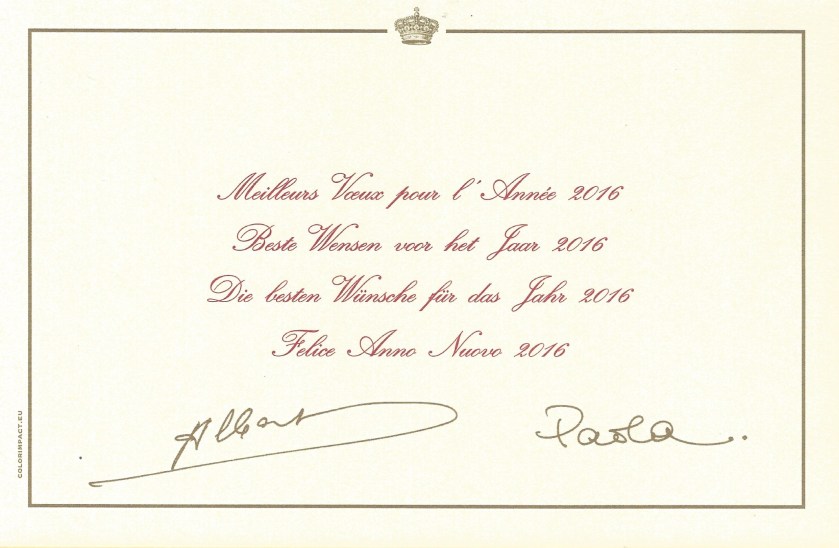 Meilleurs Vœux pour l'Année 2016
Beste Wensen voor het Jaar 2016
Die besten Wünsche für das Jahr 2016
Felice Anno Nuovo 2016
Albert
Paola.
COLORINPACT.EU